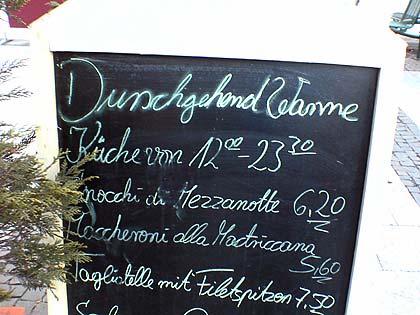 Durschgehend Warme
Küche von 12 00 - 23 30
nocchi di Mezzanotte 6,20
Maccheroni alla Matriccana
5,60
Tagliatelle mit Filetspitzen 7,50